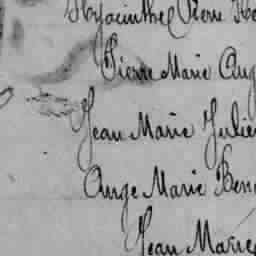 Hyacinthe Pierre
Pierre Marie Aug
Jean Marie Julie
Ange Marie Ben
Jean Marie